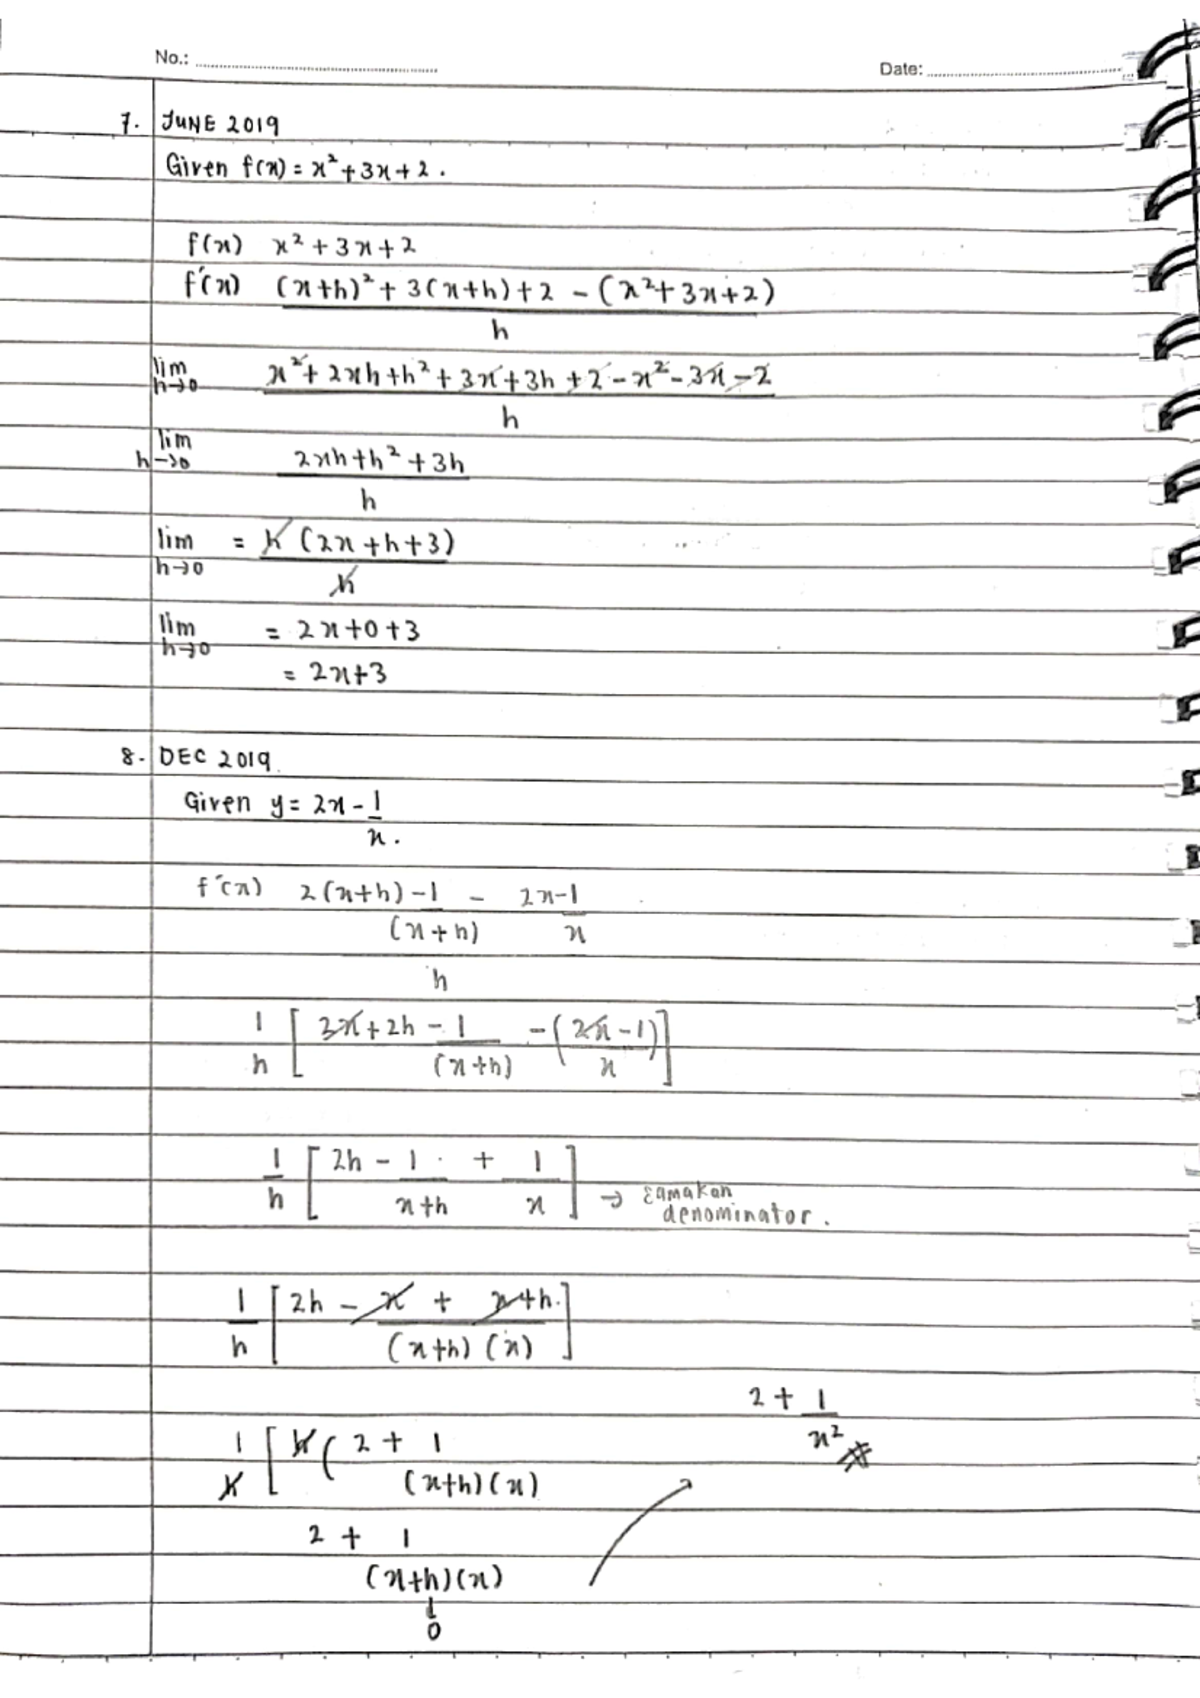 No.:
Date:
7. JUNE 2019
Given f(x) = x² + 3x + 2 .
f(x) x² + 3x + 2
f'(x) (x+h)² + 3(x+h) + 2 - (x² + 3x + 2)
h
lim h→0 x² + 2xh + h² + 3x + 3h + 2 - x² - 3x - 2
h
lim h→0 2xh + h² + 3h
h
lim h→0 = h (2x + h + 3)
h
lim h→0 = 2x + 0 + 3
= 2x + 3
8. DEC 2019.
Given y = 2x - 1
x .
f'(x) 2(x+h) - 1 - 2x - 1
(x+h) x
h
1 [ 3x + 2h - 1 - ( 2x - 1 ) ]
h (x+h) x
1 [ 2h - 1 + 1 ]
h x+h x → samakan
denominator .
1 [ 2h - x + x+h ]
h (x+h) (x)
2 + 1
x² #
1 [ h ( 2 + 1
h (x+h)(x)
2 + 1
(x+h)(x)
↓
0